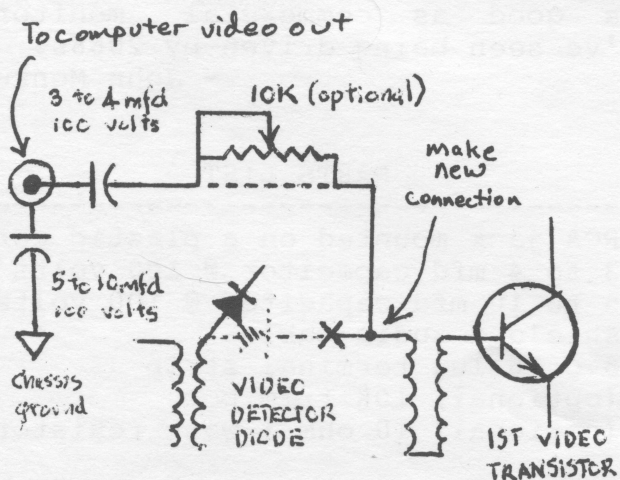 To computer video out
3 to 4 mfd
100 volts
10K (optional)
make
new
connection
5 to 10 mfd
100 volts
chassis
ground
VIDEO
DETECTOR
DIODE
1ST VIDEO
TRANSISTOR